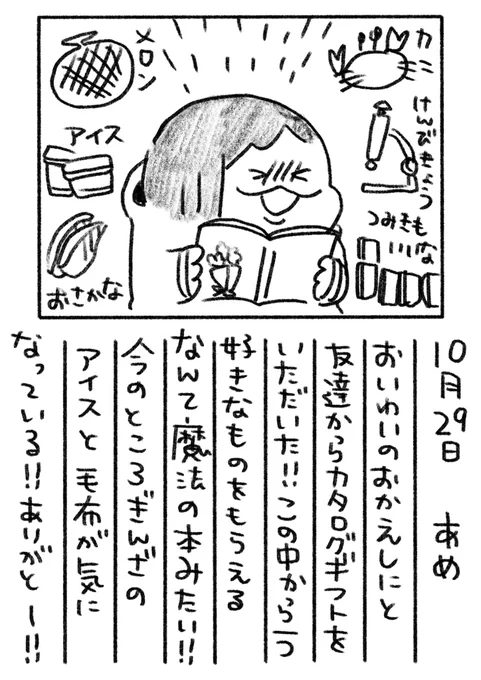 メロン
アイス
おさかな
カニ
けんびきょう
つみきも
いいな
10月29日 あめ
おいわいのおかえしにと
友達からカタログギフトを
いただいた!!この中から一つ
好きなものをもらえる
なんて魔法の本みたい!!
今のところぎんざの
アイスと毛布が気に
なっている!!ありがとー!!